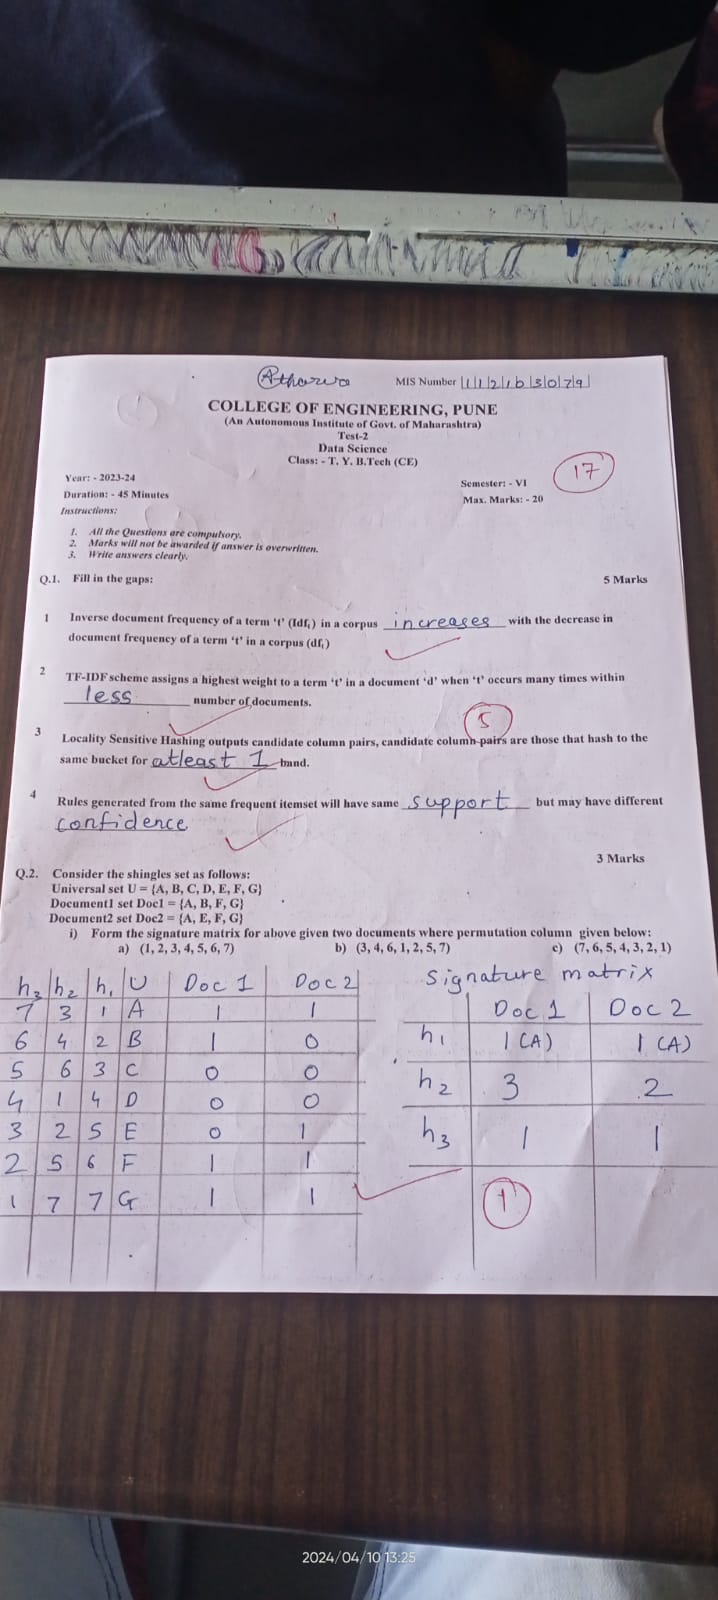 Atharva
MIS Number 1|1|2|1|0|3|0|7|9|
COLLEGE OF ENGINEERING, PUNE
(An Autonomous Institute of Govt. of Maharashtra)
Test-2
Data Science
Class: - T. Y. B.Tech (CE)
17
Year: - 2023-24
Semester: - VI
Duration: - 45 Minutes
Max. Marks: - 20
Instructions:
1. All the Questions are compulsory.
2. Marks will not be awarded if answer is overwritten.
3. Write answers clearly.
Q.1. Fill in the gaps: 5 Marks
1 Inverse document frequency of a term ‘t’ (Idfₜ) in a corpus increases with the decrease in
document frequency of a term ‘t’ in a corpus (dfₜ)
2 TF-IDF scheme assigns a highest weight to a term ‘t’ in a document ‘d’ when ‘t’ occurs many times within
less number of documents.
5
3 Locality Sensitive Hashing outputs candidate column pairs, candidate column pairs are those that hash to the
same bucket for atleast 1 band.
4 Rules generated from the same frequent itemset will have same support but may have different
confidence
3 Marks
Q.2. Consider the shingles set as follows:
Universal set U = {A, B, C, D, E, F, G}
Document1 set Doc1 = {A, B, F, G}
Document2 set Doc2 = {A, E, F, G}
i) Form the signature matrix for above given two documents where permutation column given below:
a) (1, 2, 3, 4, 5, 6, 7) b) (3, 4, 6, 1, 2, 5, 7) c) (7, 6, 5, 4, 3, 2, 1)
h₃ h₂ h₁ U Doc 1 Doc 2
7 3 1 A 1 1
6 4 2 B 1 0
5 6 3 C 0 0
4 1 4 D 0 0
3 2 5 E 0 1
2 5 6 F 1 1
1 7 7 G 1 1
Signature matrix
Doc 1 Doc 2
h₁ 1 (A) 1 (A)
h₂ 3 2
h₃ 1 1
1
2024/04/10 13:25